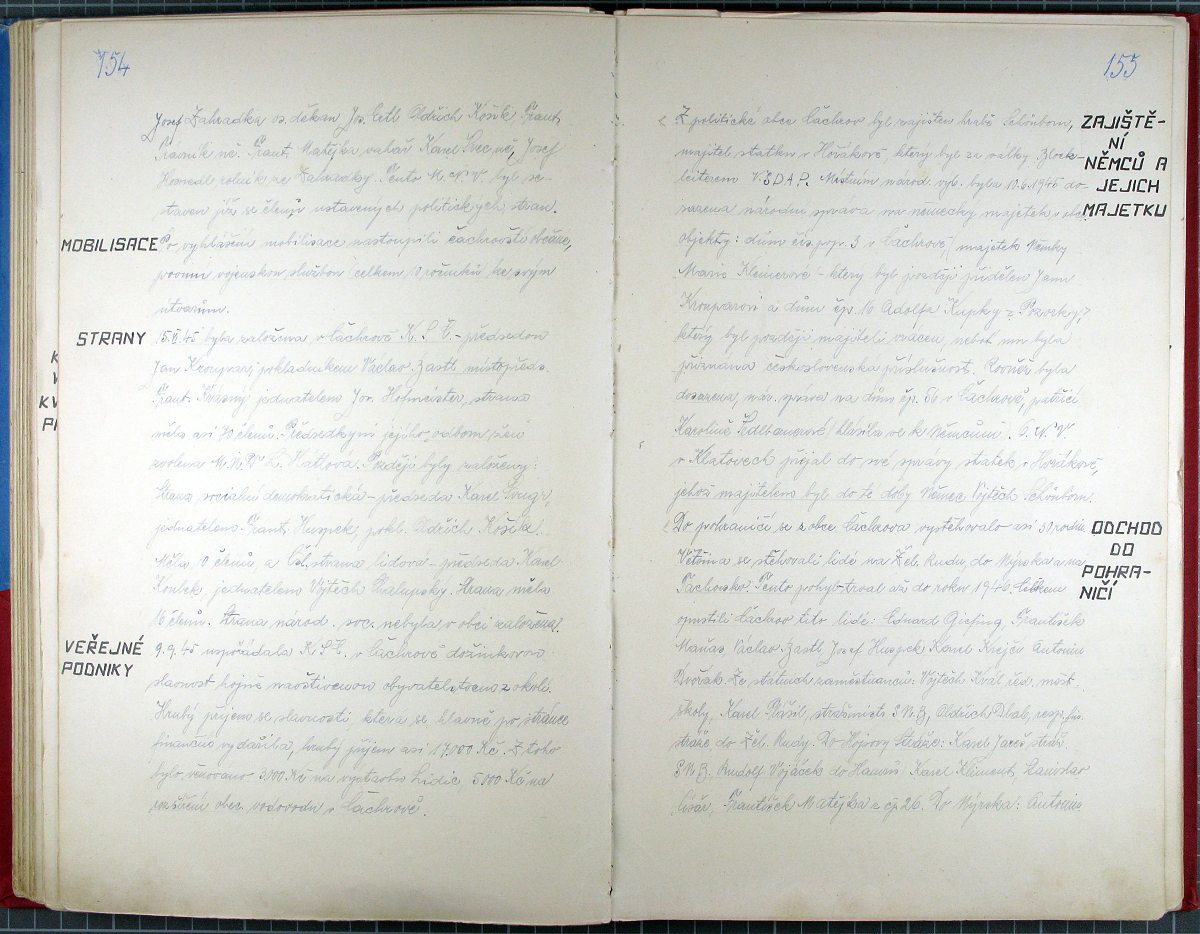 154
Josef Zahradka os. děkan Jos. Cetl Oldřich Košík Frant.
nč. Frant. Matejka valář Karel Švec nč, Josef
rolník ze Zahrádky. Tento M. N. V. byl se-
staven již se členů ustavených politických stran.
MOBILISACE
Po vyhlášení mobilisace nastoupili čachrovští občané,
vojenskou službou celkem 10 ročníků ke svým
útvarům.
STRANY
15.6.45 byla založena v Čachrově K. S. Č. - předsedou
Jan Krouparj pokladníkem Václav Zastl místopředs.
Frant. Krásný jednatelem Jos. Hofmeister, strana
měla asi 70 členů. Předsedkyní jejího odboru žen
zvolena Hatlová. Později byly založeny:
Strana sociálně demokratická - předseda Karel
jednatelem Frant. Huspek, pokl. Oldřich Košík.
Měla 10 členů, a Čsl. strana lidová - předseda Karel
Koubek jednatelem Vojtěch Chalupský. Strana měla
16 členů. Strana národ. soc. nebyla v obci založena.
VEŘEJNÉ
PODNIKY
9.9.45 uspořádala K.S.Č. v Čachrově dožínkovou
slavnost hojně navštívenou obyvatelstvem z okolí.
Hrubý příjem se slavnosti která se hlavně po stránce
finanční vydařila, hrubý příjem asi 17.000 Kč. Z toho
bylo věnováno 3000 Kč na výstavbu Lidic, 5000 Kč na
rozšíření obec. vodovodu v Čachrově.
155
ZAJIŠTĚ-
NÍ
NĚMCŮ A
JEJICH
MAJETKU
Z politické obce Čachrov byl zajištěn hrabě Schönborn,
majitel statku v Hořákově, který byl za války Block-
leiterem N.S.D.A.P. Místním národ. výb. byla 10.6.1945 do-
sazena národní správa na německý majetek
objekty: dům čís. pop. 3 v Čachrově, majetek Němky
Marie Kleinerové - který byl později přidělen Janu
Krouparovi a dům čp. 10 Adolfa Kupky
který byl později majiteli vrácen, neboť mu byla
přiznána československá příslušnost. Rovněž byla
dosazena nár. správa na dům čp. 56 v Čachrově, patřící
Karolině hlásila se k Němcům. O. N. V.
v Klatovech přijal do své správy statek v Hořákově,
jehož majitelem byl do té doby Němec Vojtěch Schönborn.
ODCHOD
DO
POHRA-
NIČÍ
Do pohraničí se z obce Čachrova vystěhovalo asi 30 rodin
Většina se stěhovali lidé na Žel. Rudu, do Nýrska a na
Tachovsko. Tento pohyb trval až do roku 1946. Celkem
opustili Čachrov tito lidé: Eduard František
Maňas Václav Zastl Josef Huspek Karel Krejčí Antonín
Dvořák. Ze státních zaměstnanců: Vojtěch Král řed. měšť.
školy, Karel Plášil, strážmistr S.N.B, Oldřich resp. fin.
stráže do Žel. Rudy. Do Hojsovy Stráže: Karel Jareš stráž.
S.N.B. Rudolf Vojáček do Hamrů Karel Kliment, Stanislav
František Matějka z čp. 26. Do Nýrska: Antonín